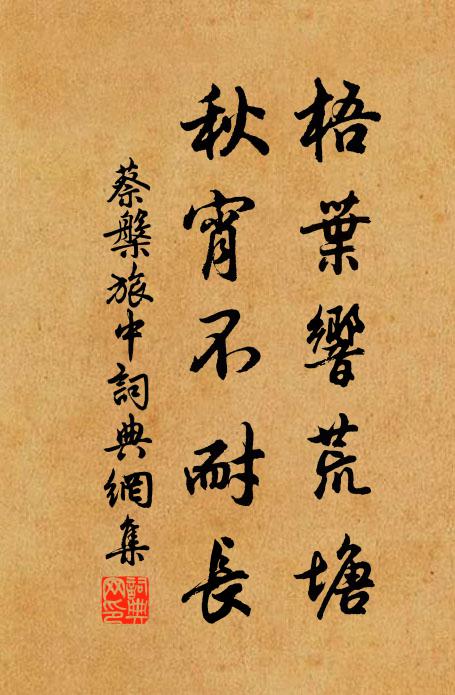 梧葉響荒塘
秋宵不耐長
蔡槃旅中詞典網集
詞典
网印